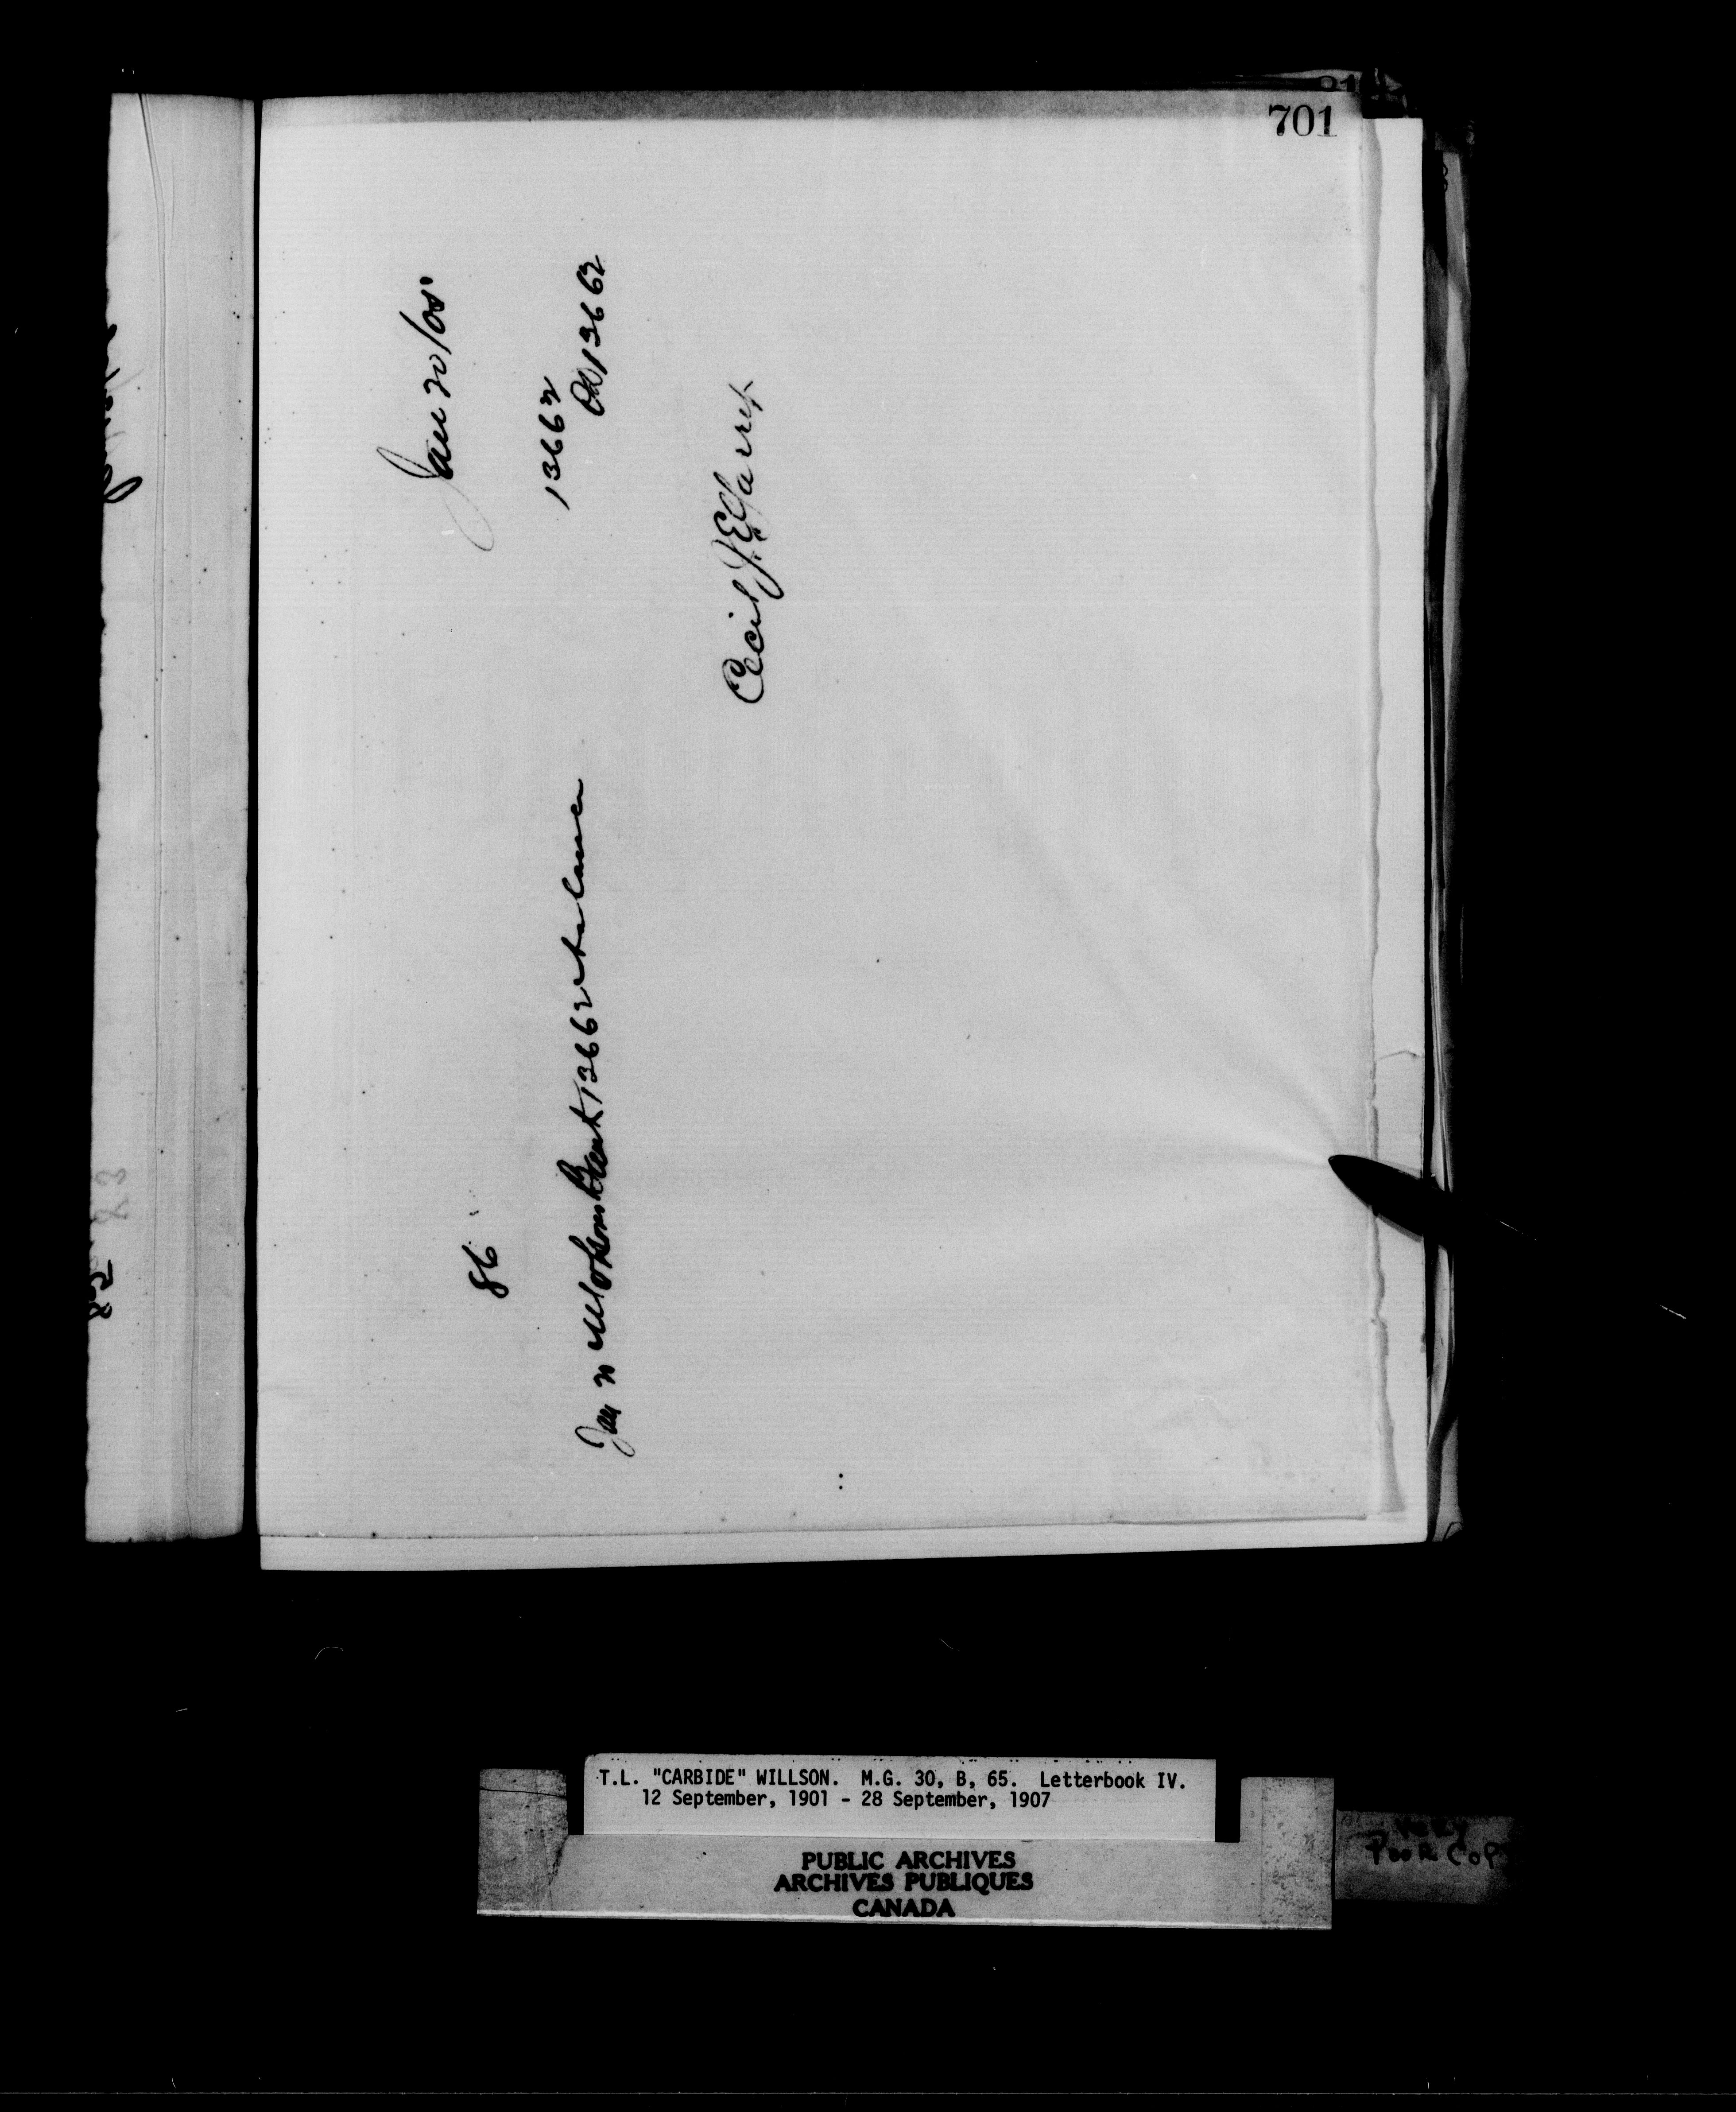 701
Jan 20/05
86
Jan 20 Molsons Bank 13662 balance 13662
13662
Cecil
T.L. "CARBIDE" WILLSON. M.G. 30, B, 65. Letterbook IV.
12 September, 1901 - 28 September, 1907
PUBLIC ARCHIVES
ARCHIVES PUBLIQUES
CANADA
Very
Poor Copy
85